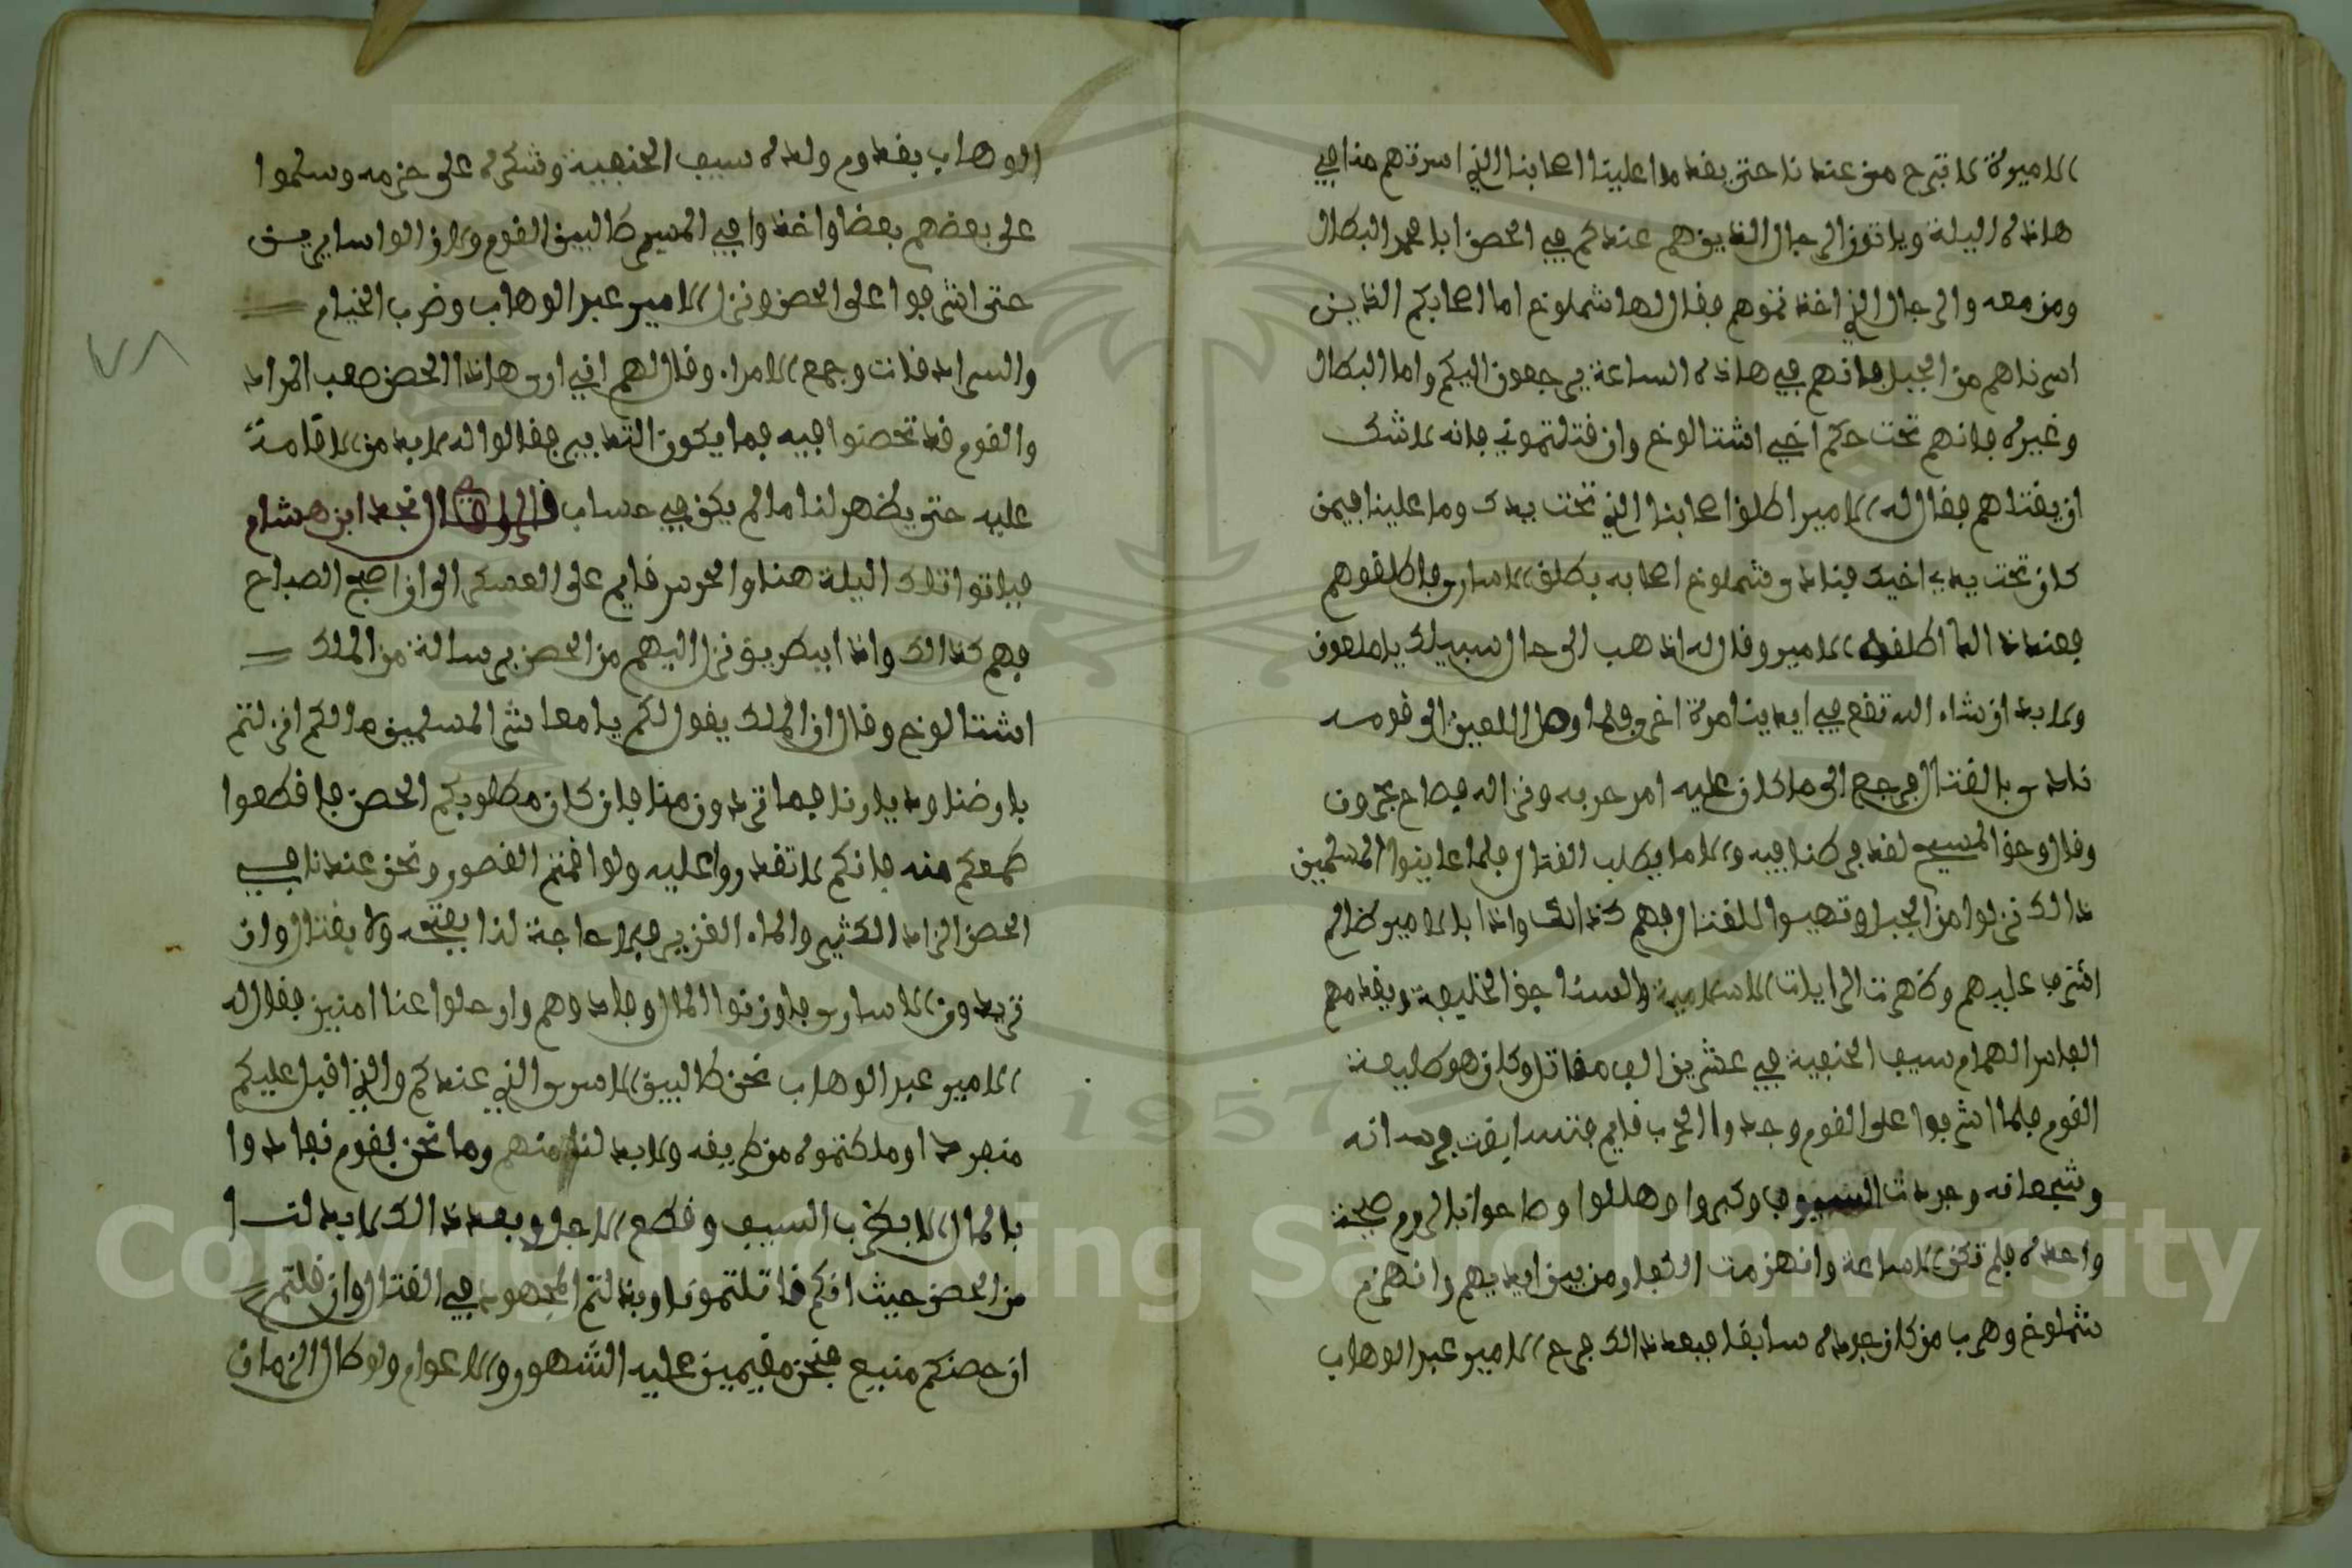 الاميرة لا تبرح من عندنا حتى يقدموا علينا اصحابنا الذي اسرتهم منا في
هاذه اليلة وياتون الرجال الذين هم عندكم في الحصن ابا محمد البطال
ومن معه والرجال الذي اخذتموهم فقال لها شملوخ اما اصحابكم الذين
اسرناهم من الجبل فانهم في هاذه الساعة يرجعون اليكم واما البطال
وغيره فانهم تحت حكم اخي اشتالوخ وان قتلتموني فانه لا شك
ان يقتلهم فقال له الامير اطلق اصحابنا الذي تحت يدك وما علينا فيمن
كان تحت يد اخيك فنادى شملوخ اصحابه بطلق الاسارى فاطلقوهم
فعند ذالك اطلقه الامير وقال له اذهب الى حال سبيلك يا ملعون
ولا بد ان شاء الله تقع في ايدينا مرة اخرى فلما وصل اللعين الى قومه
نادى بالقتال فرجع الى ما كان عليه امر حربه ونزاله فصاح بحرون
وقال وحق المسيح لقد فرطنا فيه والا ما يطلب القتال فلما عاينوا المسلمين
ذالك نزلوا من الجبل وتهيوا للقتال فهم كذالك واذا بالامير ظالم
اشرف عليهم وظهرت الرايات الاسلامية والسناجق الخليفية ويقدمهم
الفارس الهمام سيف الحنفية في عشرين الف مقاتل وكان هو طليعة
القوم فلما اشرفوا على القوم وجدوا الحرب قايم فتسابقت فرسانه
وشجعانه وجردت السيوف وكبروا وهللوا وصاحوا بالروم صيحة
واحدة فلم تكن الا ساعة وانهزمت الكفار من بين ايديهم وانهزم
شملوخ وهرب من كان جرده سابقا فبعد ذالك فرح الامير عبد الوهاب
الوهاب بقدوم ولده سيف الحنفية وشكره على حزمه وسلموا
على بعضهم بعضا واخذوا في المسير طالبين القوم والاق الواسايرين
حتى اشرفوا على الحصن ونزل الامير عبد الوهاب وضرب الخيام
والسرادقات وجمع الامراء وقال لهم اني ارى هاذا الحصن صعب المراد
والقوم قد تحصنوا فيه فما يكون التدبير فقالوا له لا بد من الاقامة
عليه حتى يظهر لنا ما لم يكن في حساب قال الراوي قال نجد ابن هشام
فباتوا تلك اليلة هنا والحرس قايم على العسكر الى ان اصبح الصباح
فهم كذالك واذا ببطريق نزل اليهم من الحصن برسالة من الملك
اشتالوخ وقال ان الملك يقول لكم يا معاشر المسلمين ما لكم انزلتم
بارضنا وديارنا فما تريدون منا فان كان مطلوبكم الحصن فاقطعوا
طمعكم منه فانكم لا تقدروا عليه ولو اقمتم العصور ونحن عندنا في
الحصن الزاد الكثير والماء الغزير فلا حاجة لنا بفتحه ولا بقتال وان
تريدون الاسارى فاوزنوا المال وفادوهم وارحلوا عنا امنين فقال له
الامير عبد الوهاب نحن طالبين الاسرى الذي عندكم والذي اقبل عليكم
منفردا وملكتموه من طريقه ولا بد لنا منهم وما نحن بقوم نفادوا
بالمال الا بضرب السيف وقطع الاجل وبعد ذالك لا بد لنا
من الحصن حيث انكم قاتلتمونا وبذلتم المجهود في القتال وان قلتم
ان حصنكم منيع فنحن مقيمين عليه الشهور والاعوام ولو طال الزمان
٧٨
Copyright © King Saud University
1957